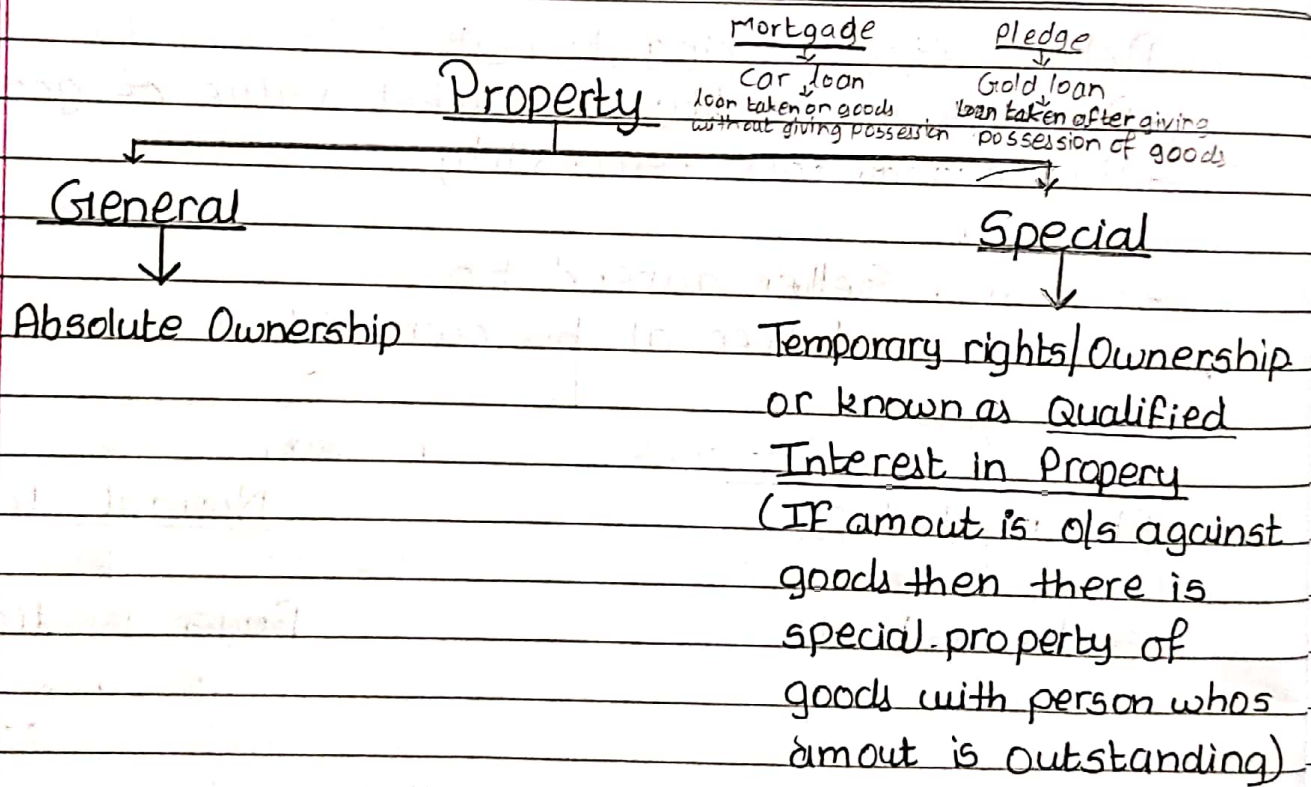 Mortgage
Pledge
Car loan
Gold loan
Property
loan taken on goods
without giving possession
loan taken after giving
possession of goods
General
Special
Absolute Ownership
Temporary rights/Ownership
or known as Qualified
Interest in Propery
(If amout is o/s against
goods then there is
special property of
goods with person whos
amout is outstanding)